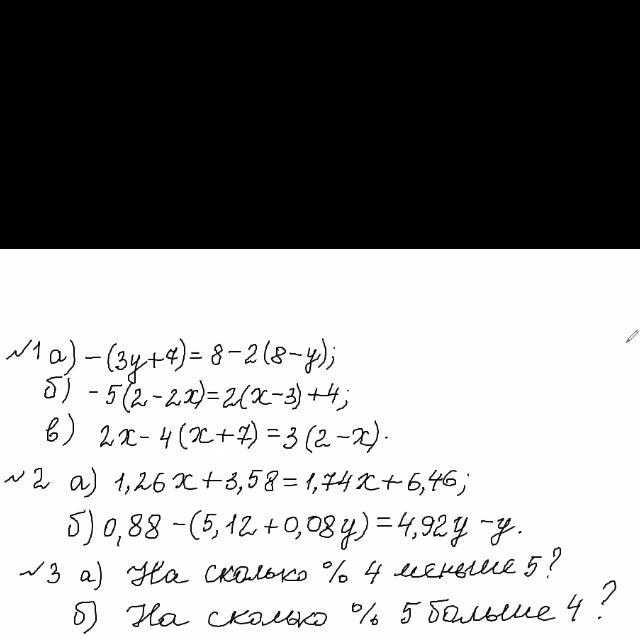 №1 а) -(3y+7)=8-2(8-y);
б) -5(2-2x)=2(x-3)+4;
в) 2x-4(x+7)=3(2-x).
№2 а) 1,26x+3,58=1,74x+6,46;
б) 0,88-(5,12+0,08y)=4,92y-y.
№3 а) На сколько % 4 меньше 5?
б) На сколько % 5 больше 4?